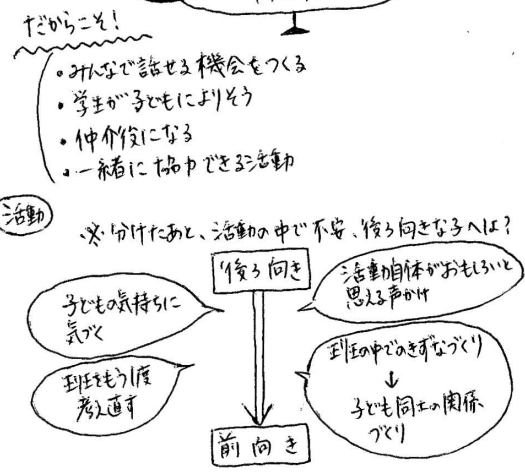 だからこそ!
・みんなで話せる機会をつくる
・学生が子どもによりそう
・仲介役になる
・一緒に協力できる活動
活動
※分けたあと、活動の中で不安、後ろ向きな子へは?
後ろ向き
子どもの気持ちに
気づく
活動自体がおもしろいと
思える声かけ
班をもう1度
考え直す
班の中でのきずなづくり
↓
子ども同士の関係
づくり
前向き